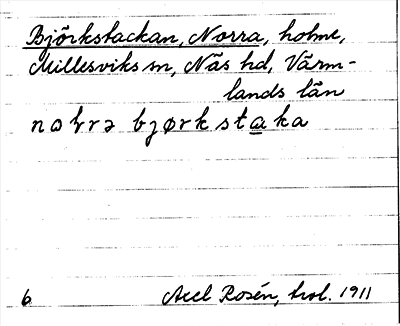 Björkstackan, Norra, holme,
Millesviks sn, Näs hd, Värm-
lands län
nabrə bjørkstaka
6 Axel Rosén, trol. 1911